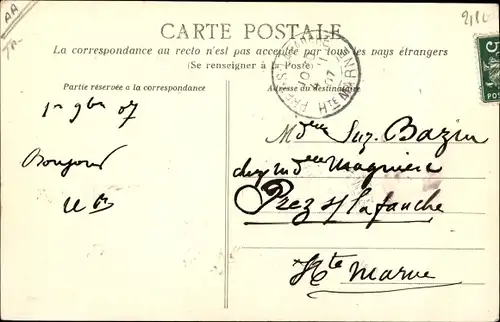 AA
CARTE POSTALE
La correspondance au recto n'est pas acceptée par tous les pays étrangers
(Se renseigner à la Poste)
Partie réservée à la correspondance
Adresse du destinataire
HTE MARNE
5
1er 9bre 07
Bonjour
Mdlle Suz. Bazin
chez Md Magnien
Prez s/ lafauche
Hte Marne